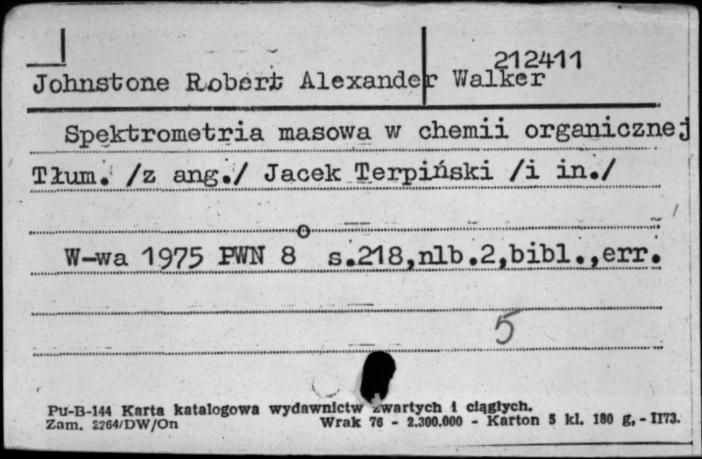 212411
Johnstone Robert Alexander Walker
Spektrometria masowa w chemii organicznej
Tłum. /z ang./ Jacek Terpiński /i in./
W-wa 1975 PWN 8° s.218,nlb.2,bibl.,err.
5
Pu-B-144 Karta katalogowa wydawnictw zwartych i ciągłych.
Zam. 2264/DW/On Wrak 76 - 2.300.000 - Karton 5 kl. 180 g. - II73.